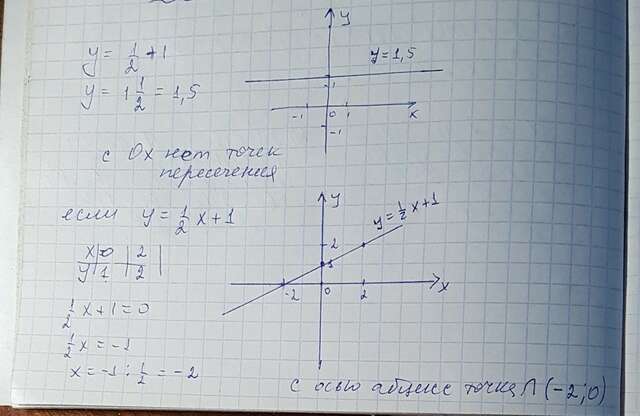 y = 1/2 + 1
y = 1 1/2 = 1,5
y
y=1,5
1
-1 0 1 x
-1
с Ox нет точек
пересечения
если y = 1/2 x + 1
x 0 2
y 1 2
1/2 x + 1 = 0
1/2 x = -1
x = -1 : 1/2 = -2
y
y = 1/2 x + 1
2
1
-2 0 2 x
с осью абцисс точка Л (-2; 0)